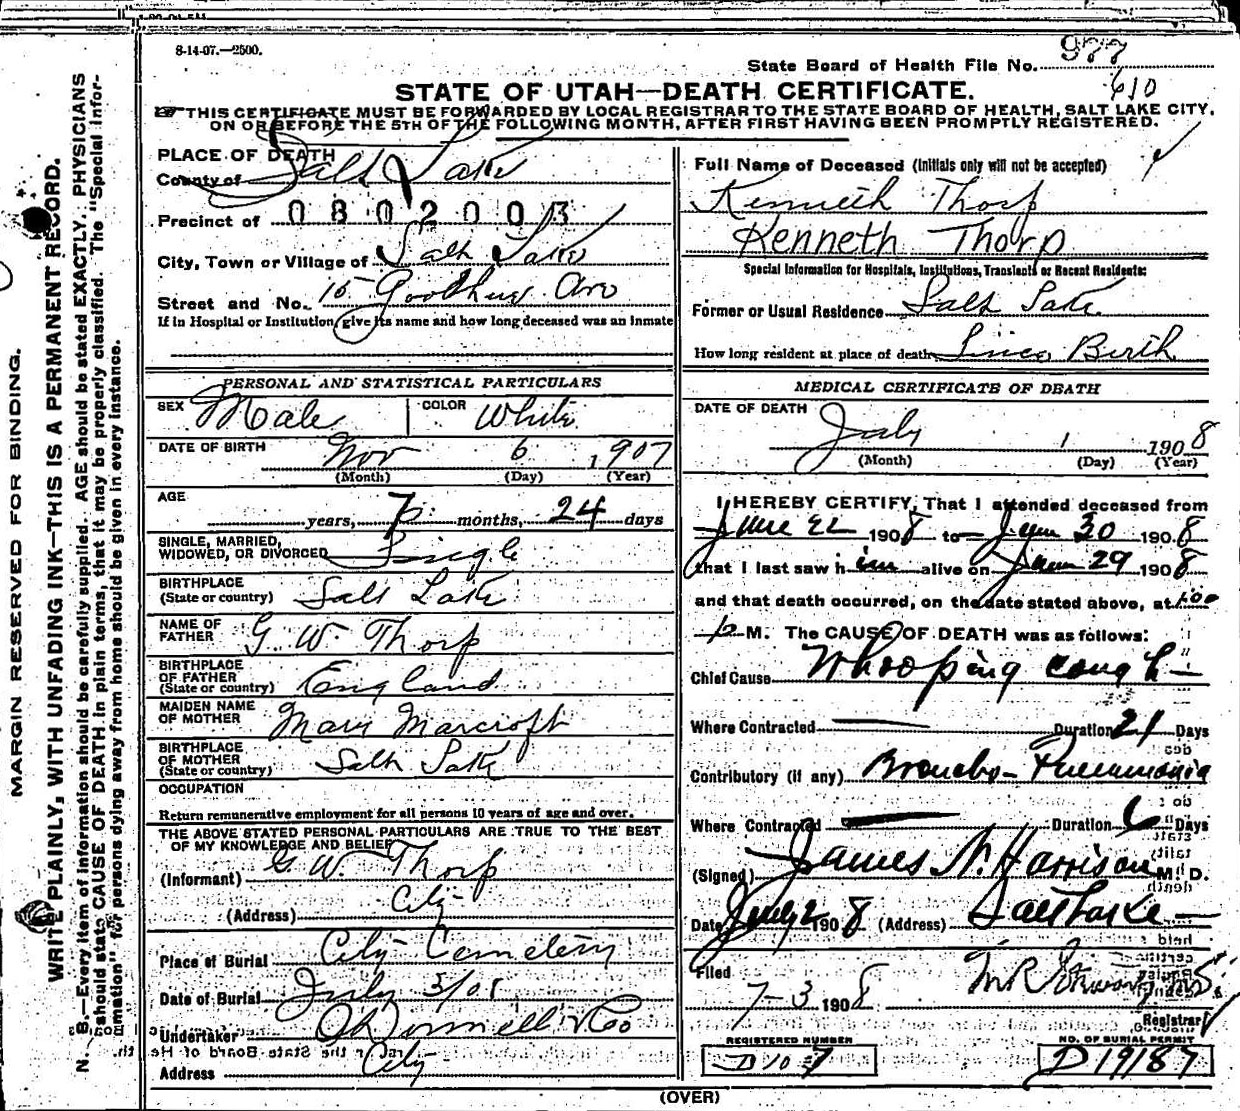 8-14-07.—2500.
State Board of Health File No. 977
610
STATE OF UTAH—DEATH CERTIFICATE.
THIS CERTIFICATE MUST BE FORWARDED BY LOCAL REGISTRAR TO THE STATE BOARD OF HEALTH, SALT LAKE CITY,
ON OR BEFORE THE 5TH OF THE FOLLOWING MONTH, AFTER FIRST HAVING BEEN PROMPTLY REGISTERED.
MARGIN RESERVED FOR BINDING.
WRITE PLAINLY, WITH UNFADING INK—THIS IS A PERMANENT RECORD.
N. B.—Every item of information should be carefully supplied. AGE should be stated EXACTLY. PHYSICIANS
should state CAUSE OF DEATH in plain terms, that it may be properly classified. The "Special Infor-
mation" for persons dying away from home should be given in every instance.
PLACE OF DEATH
County of Salt Lake
Precinct of 0802003
City, Town or Village of Salt Lake
Street and No. 15 Ave
If in Hospital or Institution, give its name and how long deceased was an inmate
Full Name of Deceased (Initials only will not be accepted)
Kenneth Thorp
Kenneth Thorp
Special Information for Hospitals, Institutions, Transients or Recent Residents:
Former or Usual Residence Salt Lake
How long resident at place of death Since Birth
PERSONAL AND STATISTICAL PARTICULARS
SEX Male COLOR White
DATE OF BIRTH Nov 6 1907
(Month) (Day) (Year)
AGE years, 7 months, 24 days
SINGLE, MARRIED,
WIDOWED, OR DIVORCED Single
BIRTHPLACE
(State or country) Salt Lake
NAME OF
FATHER G. W. Thorp
BIRTHPLACE
OF FATHER
(State or country) England
MAIDEN NAME
OF MOTHER Mary Marcroft
BIRTHPLACE
OF MOTHER
(State or country) Salt Lake
OCCUPATION
Return remunerative employment for all persons 10 years of age and over.
THE ABOVE STATED PERSONAL PARTICULARS ARE TRUE TO THE BEST
OF MY KNOWLEDGE AND BELIEF
(Informant) G. W. Thorp
(Address) City
Place of Burial City Cemetery
Date of Burial July 3/08
Undertaker O'Donnell & Co
Address City
MEDICAL CERTIFICATE OF DEATH
DATE OF DEATH July 1 1908
(Month) (Day) (Year)
I HEREBY CERTIFY, That I attended deceased from
June 22 1908 to Jun 30 1908
that I last saw him alive on June 29 1908
and that death occurred, on the date stated above, at 1:00
p M. The CAUSE OF DEATH was as follows:
Chief Cause Whooping cough
Where Contracted Duration 21 Days
Contributory (if any) Broncho-Pneumonia
Where Contracted Duration 6 Days
(Signed) James N. Harrison M. D.
Date July 2 1908 (Address) Salt Lake
Filed
7-3 1908
Registrar
REGISTERED NUMBER
D 10 7
NO. OF BURIAL PERMIT
D 19187
(OVER)